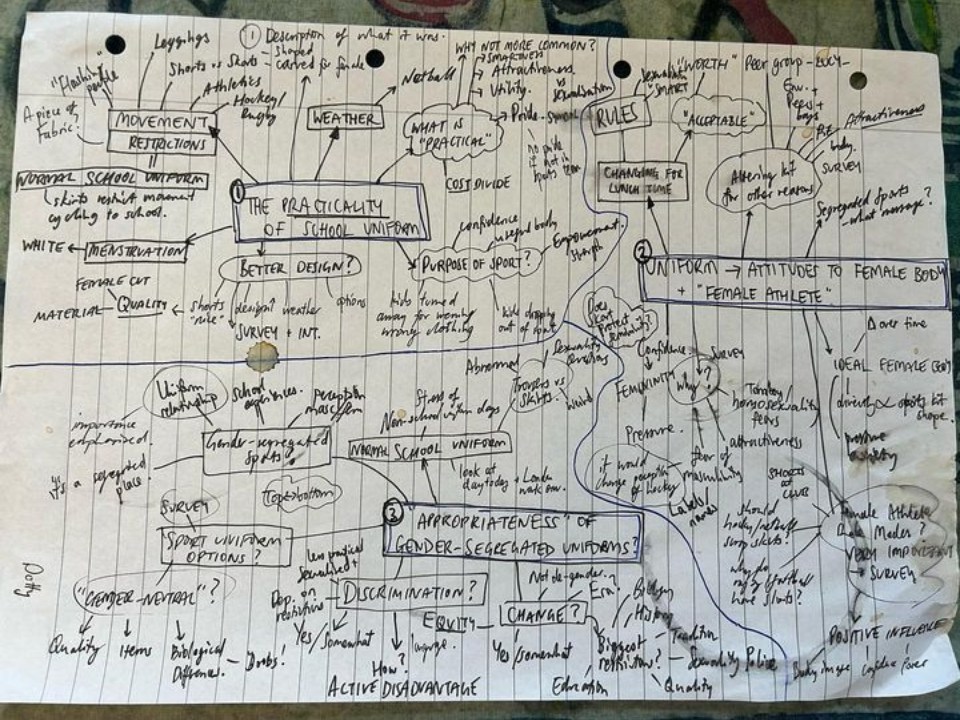 ① Description of what it was.
- shaped
- carved for female
Leggings
Shorts vs Skorts
Athletics
Hockey/
Rugby
"Flashing"
A piece of
Fabric.
MOVEMENT
RESTRICTIONS
NORMAL SCHOOL UNIFORM
skirts restrict movement
cycling to school.
WEATHER
Netball
WHY NOT MORE COMMON?
Smartness
Attractiveness
Utility.
Pride
no pride
if not in
sports team
WHAT IS
"PRACTICAL"
COST DIVIDE
①
THE PRACTICALITY
OF SCHOOL UNIFORM
WHITE
MENSTRUATION
FEMALE CUT
MATERIAL
QUALITY
BETTER DESIGN?
shorts
"rule"
design?
weather
options
SURVEY + INT.
PURPOSE OF SPORT?
confidence
useful body
Empowerment.
Strength
kids turned
away for wearing
wrong clothing
kids dropping
out of sport
RULES
"WORTH"
"SMART"
"ACCEPTABLE"
CHANGING FOR
LUNCH TIME
Peer group - LUCY
Env. +
Peers +
boys
Attractiveness
body.
SURVEY
Altering kit
for other reasons
Segregated Sports
- what message?
②
UNIFORM → ATTITUDES TO FEMALE BODY
+ "FEMALE ATHLETE"
Δ over time
IDEAL FEMALE BODY
shape.
Does
Skort
Protect
Confidence
FEMININITY
SURVEY
Why?
Tomboy/
homosexuality
fears
attractiveness
fear of
masculinity
Labels/
names
Pressure.
it would
change perception
of hockey
SHORTS
AT
CLUB
should
hockey/netball
swap skirts?
why do
rugby/football
have shorts?
Female Athlete
Role Model?
VERY IMPORTANT
SURVEY
POSITIVE INFLUENCE
Body image
Uniform
relationship
School
experiences.
perception
masc/fem
importance
emphasised.
it's a segregated
place.
Gender-segregated
Sports?
Abnormal
Sexuality
Questions
Trousers vs
Skirts.
weird
Stress of
Non-school uniform days
NORMAL SCHOOL UNIFORM
look at
day today
SURVEY
Top > bottom
SPORT UNIFORM
OPTIONS?
③
"APPROPRIATENESS" OF
GENDER-SEGREGATED UNIFORMS?
"GENDER-NEUTRAL"?
Quality
Items
Biological
Difference.
- Boobs!
Less practical
Sexualised +
Dep. on
restrictions
DISCRIMINATION?
Yes/Somewhat
How?
ACTIVE DISADVANTAGE
EQUITY
CHANGE?
Not de-gender.
Yes/somewhat
Biology
History
Tradition
Biggest
restrictions?
Sexuality Police
Quality
Education
Dotty